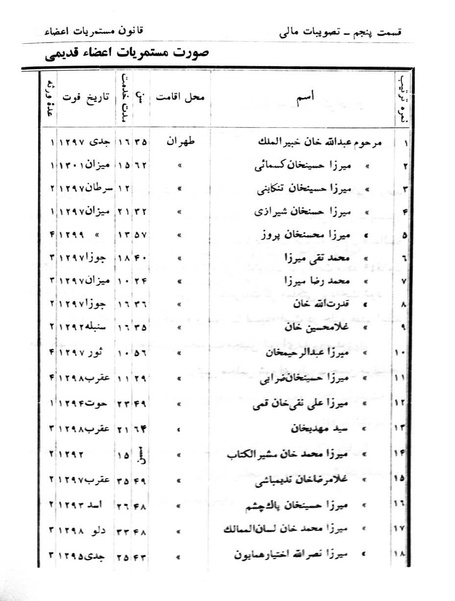 قسمت پنجم ـ تصویبات مالی قانون مستمریات اعضاء
صورت مستمریات اعضاء قدیمی
نمره ترتیب اسم محل اقامت سن مدت خدمت تاریخ فوت عدهٔ ورثه
۱ مرحوم عبدالله خان خبیرالملک طهران ۳۵ ۱۶ جدی ۱۲۹۷ ۱
۲ » میرزا حسینخان کسمائی » ۶۲ ۱۵ میزان ۱۳۰۱ ۱
۳ » میرزا حسینخان تنکابنی » ۱۲ سرطان ۱۲۹۷ ۲
۴ » میرزا حسنخان شیرازی » ۳۲ ۲۱ میزان ۱۲۹۷ ۱
۵ » میرزا محسنخان پروز » ۵۷ ۱۳ » ۱۲۹۹ ۴
۶ » محمد تقی میرزا » ۴۰ ۱۸ جوزا ۱۲۹۷ ۳
۷ » محمد رضا میرزا » ۲۴ ۱۰ میزان ۱۲۹۷ ۳
۸ » قدرت‌الله خان » ۳۶ ۱۶ جوزا ۱۲۹۷ ۲
۹ » غلامحسین خان » ۳۵ ۱۶ سنبله ۱۲۹۲ ۲
۱۰ » میرزا عبدالرحیمخان » ۵۶ ۱۰ ثور ۱۲۹۷ ۴
۱۱ » میرزا حسینخان ضرابی » ۲۹ ۱۱ عقرب ۱۲۹۸ ۴
۱۲ » میرزا علی نقی خان قمی » ۴۹ ۲۳ حوت ۱۲۹۴ ۱
۱۳ » سید مهدیخان » ۶۴ ۲۱ عقرب ۱۲۹۸ ۳
۱۴ » میرزا محمد خان مشیرالکتاب » ۱۵ ۱۲۹۲ ۲
۱۵ » غلامرضاخان ندیمباشی » ۴۹ ۳۵ عقرب ۱۲۹۷ ۲
۱۶ » میرزا حسینخان پاك چشم » ۴۸ ۲۶ اسد ۱۲۹۳ ۲
۱۷ » میرزا محمد خان لسان‌الممالك » ۴۸ ۳۳ دلو ۱۲۹۸ ۳
۱۸ » میرزا نصرالله اختیارهمایون » ۴۳ ۲۵ جدی ۱۲۹۵ ۳